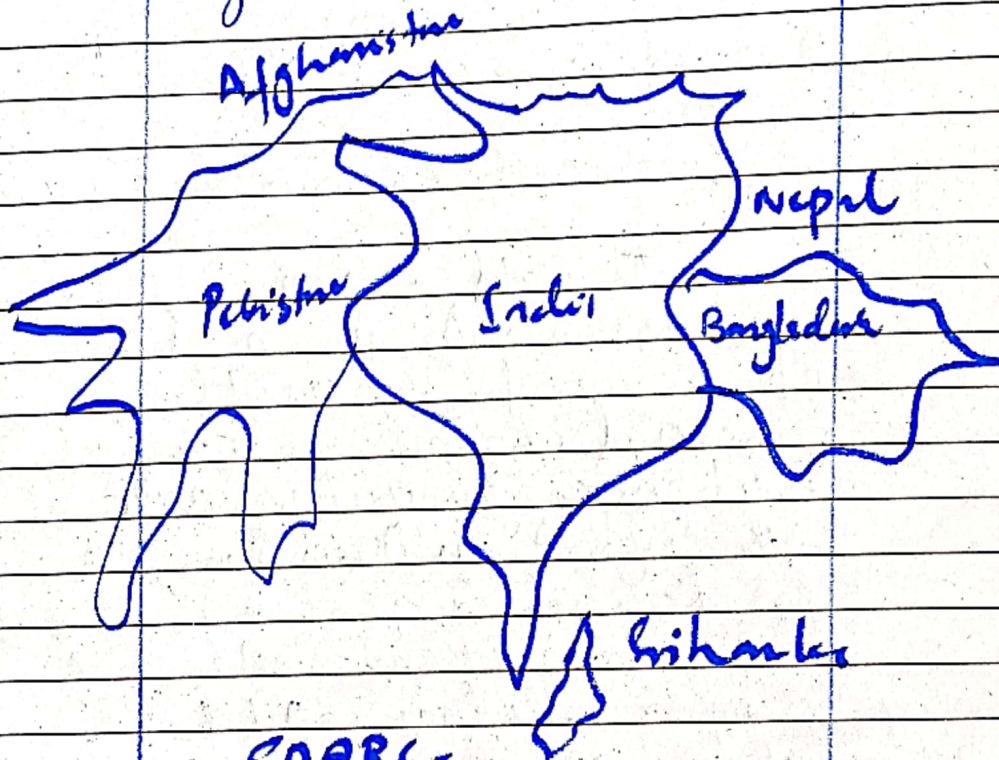 Afghanistan
Nepal
Pakistan
India
Bangladesh
Srilanka
SAARC-